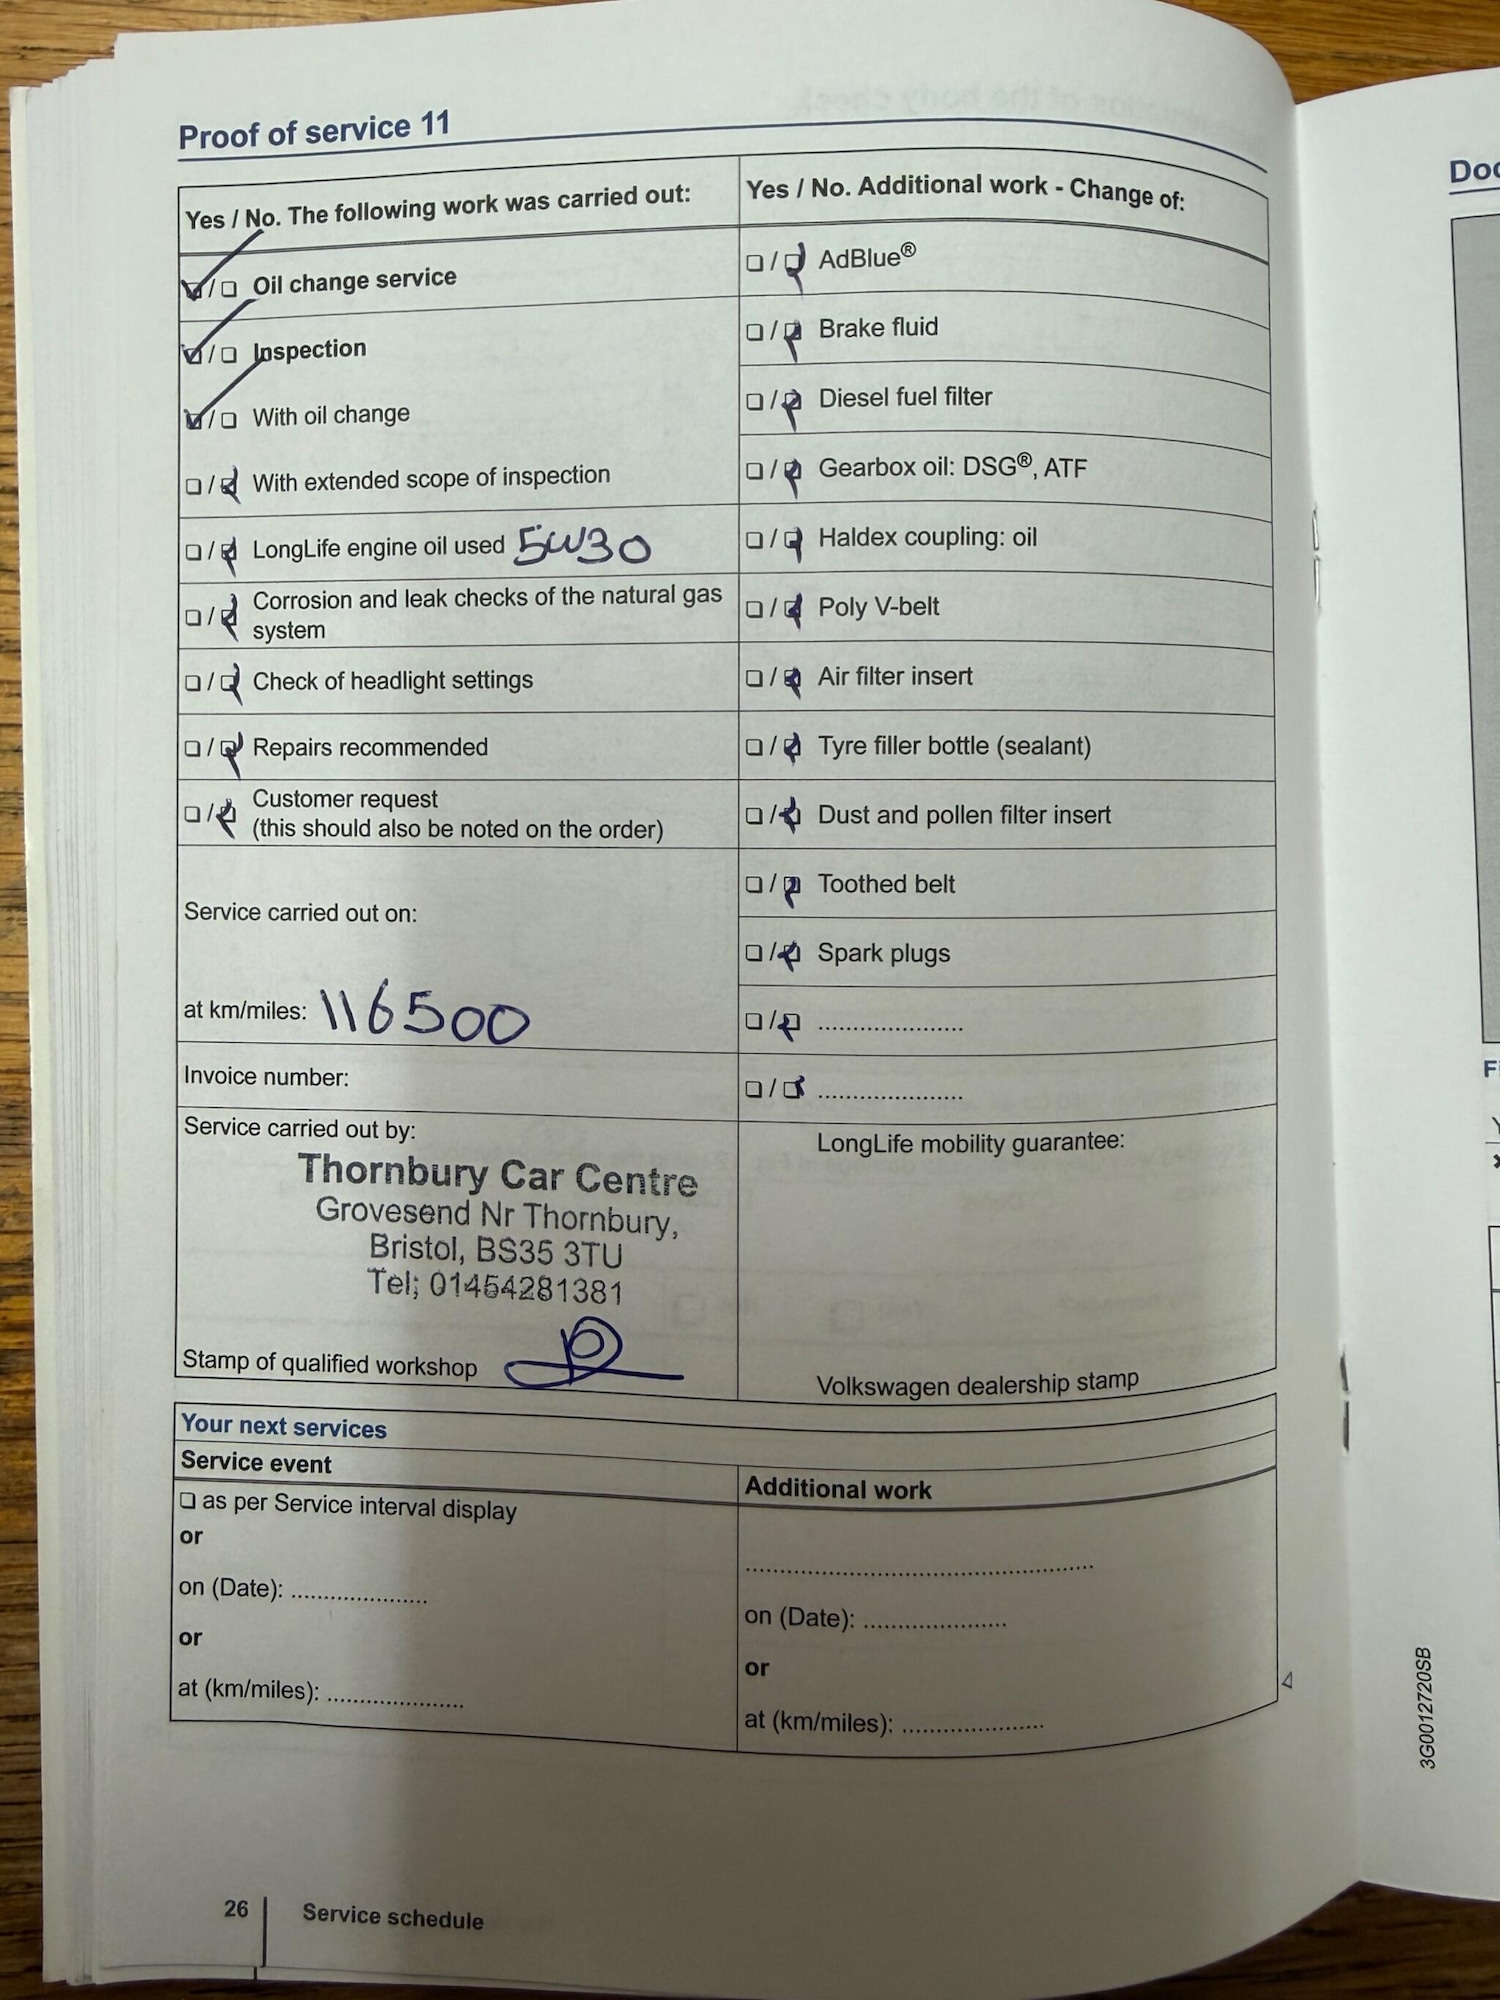 Proof of service 11
Yes / No. The following work was carried out:
☑/☐ Oil change service
☑/☐ Inspection
☑/☐ With oil change
☐/☑ With extended scope of inspection
☐/☑ LongLife engine oil used 5W30
☐/☑ Corrosion and leak checks of the natural gas
system
☐/☑ Check of headlight settings
☐/☑ Repairs recommended
☐/☑ Customer request
(this should also be noted on the order)
Service carried out on:
at km/miles: 116500
Invoice number:
Service carried out by:
Thornbury Car Centre
Grovesend Nr Thornbury,
Bristol, BS35 3TU
Tel; 01454281381
Stamp of qualified workshop
Yes / No. Additional work - Change of:
☐/☑ AdBlue®
☐/☑ Brake fluid
☐/☑ Diesel fuel filter
☐/☑ Gearbox oil: DSG®, ATF
☐/☑ Haldex coupling: oil
☐/☑ Poly V-belt
☐/☑ Air filter insert
☐/☑ Tyre filler bottle (sealant)
☐/☑ Dust and pollen filter insert
☐/☑ Toothed belt
☐/☑ Spark plugs
☐/☑ .....................
☐/☑ .....................
LongLife mobility guarantee:
Volkswagen dealership stamp
Your next services
Service event
☐ as per Service interval display
or
on (Date): ....................
or
at (km/miles): ....................
Additional work
....................................................
on (Date): .....................
or
at (km/miles): .....................
26 Service schedule
3G0012720SB